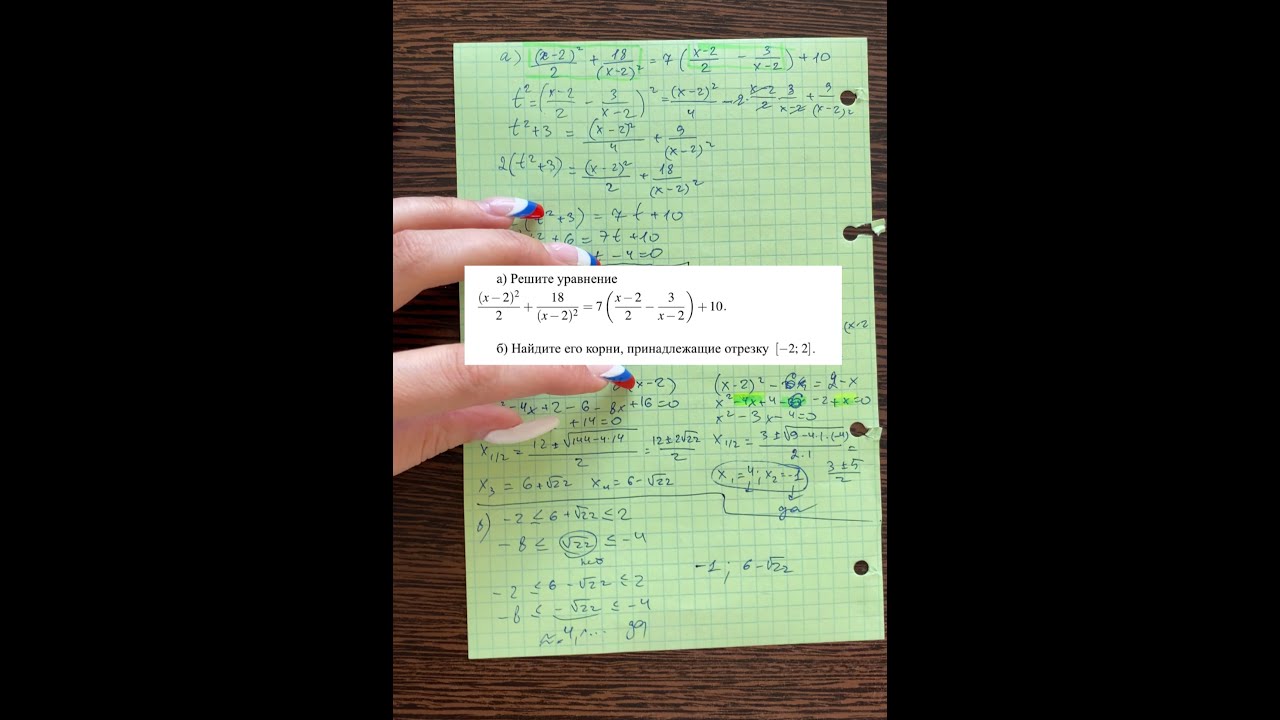 а.) (x-2)²/2 + 18/(x-2)² = 7 ( x-2/2 - 3/x-2 ) + 10
t² = ( x-2/2 - 3/x-2 )² = (x-2)²/4 - 2· x-2/2 · 3/x-2 + 9/(x-2)²
t²+3 = (x-2)²/4 + 9/(x-2)²
2(t²+3) = (x-2)²/2 + 18/(x-2)²
(t²+3) = 7t+10
+6 = 7t+10
-4=0
а) Решите уравнение
(x-2)²/2 + 18/(x-2)² = 7 ( x-2/2 - 3/x-2 ) + 10.
б) Найдите его корни, принадлежащие отрезку [-2; 2].
(x-2
x-2)
-4x+2-6-8x+16=0
+14=0
x1/2 = 12±√144-4·14/2 = 12±2√22/2
x3 = 6+√22 x4 = 6-√22
(x-2)² - 6 = 2-x
x²-4x+4-6-2+x=0
x²-3x-4=0
x1/2 = 3±√9-4·1·(-4)/2·1 =
3±5/2
x1=4; x2=-1
да
в) -2 ≤ 6+√22 ≤ 2
-8 ≤ √22 ≤ -4
-2 ≤ 6-√22 ≤ 2
-8 ≤ -√22 ≤ -4
≈-4,... да
-1; 6-√22